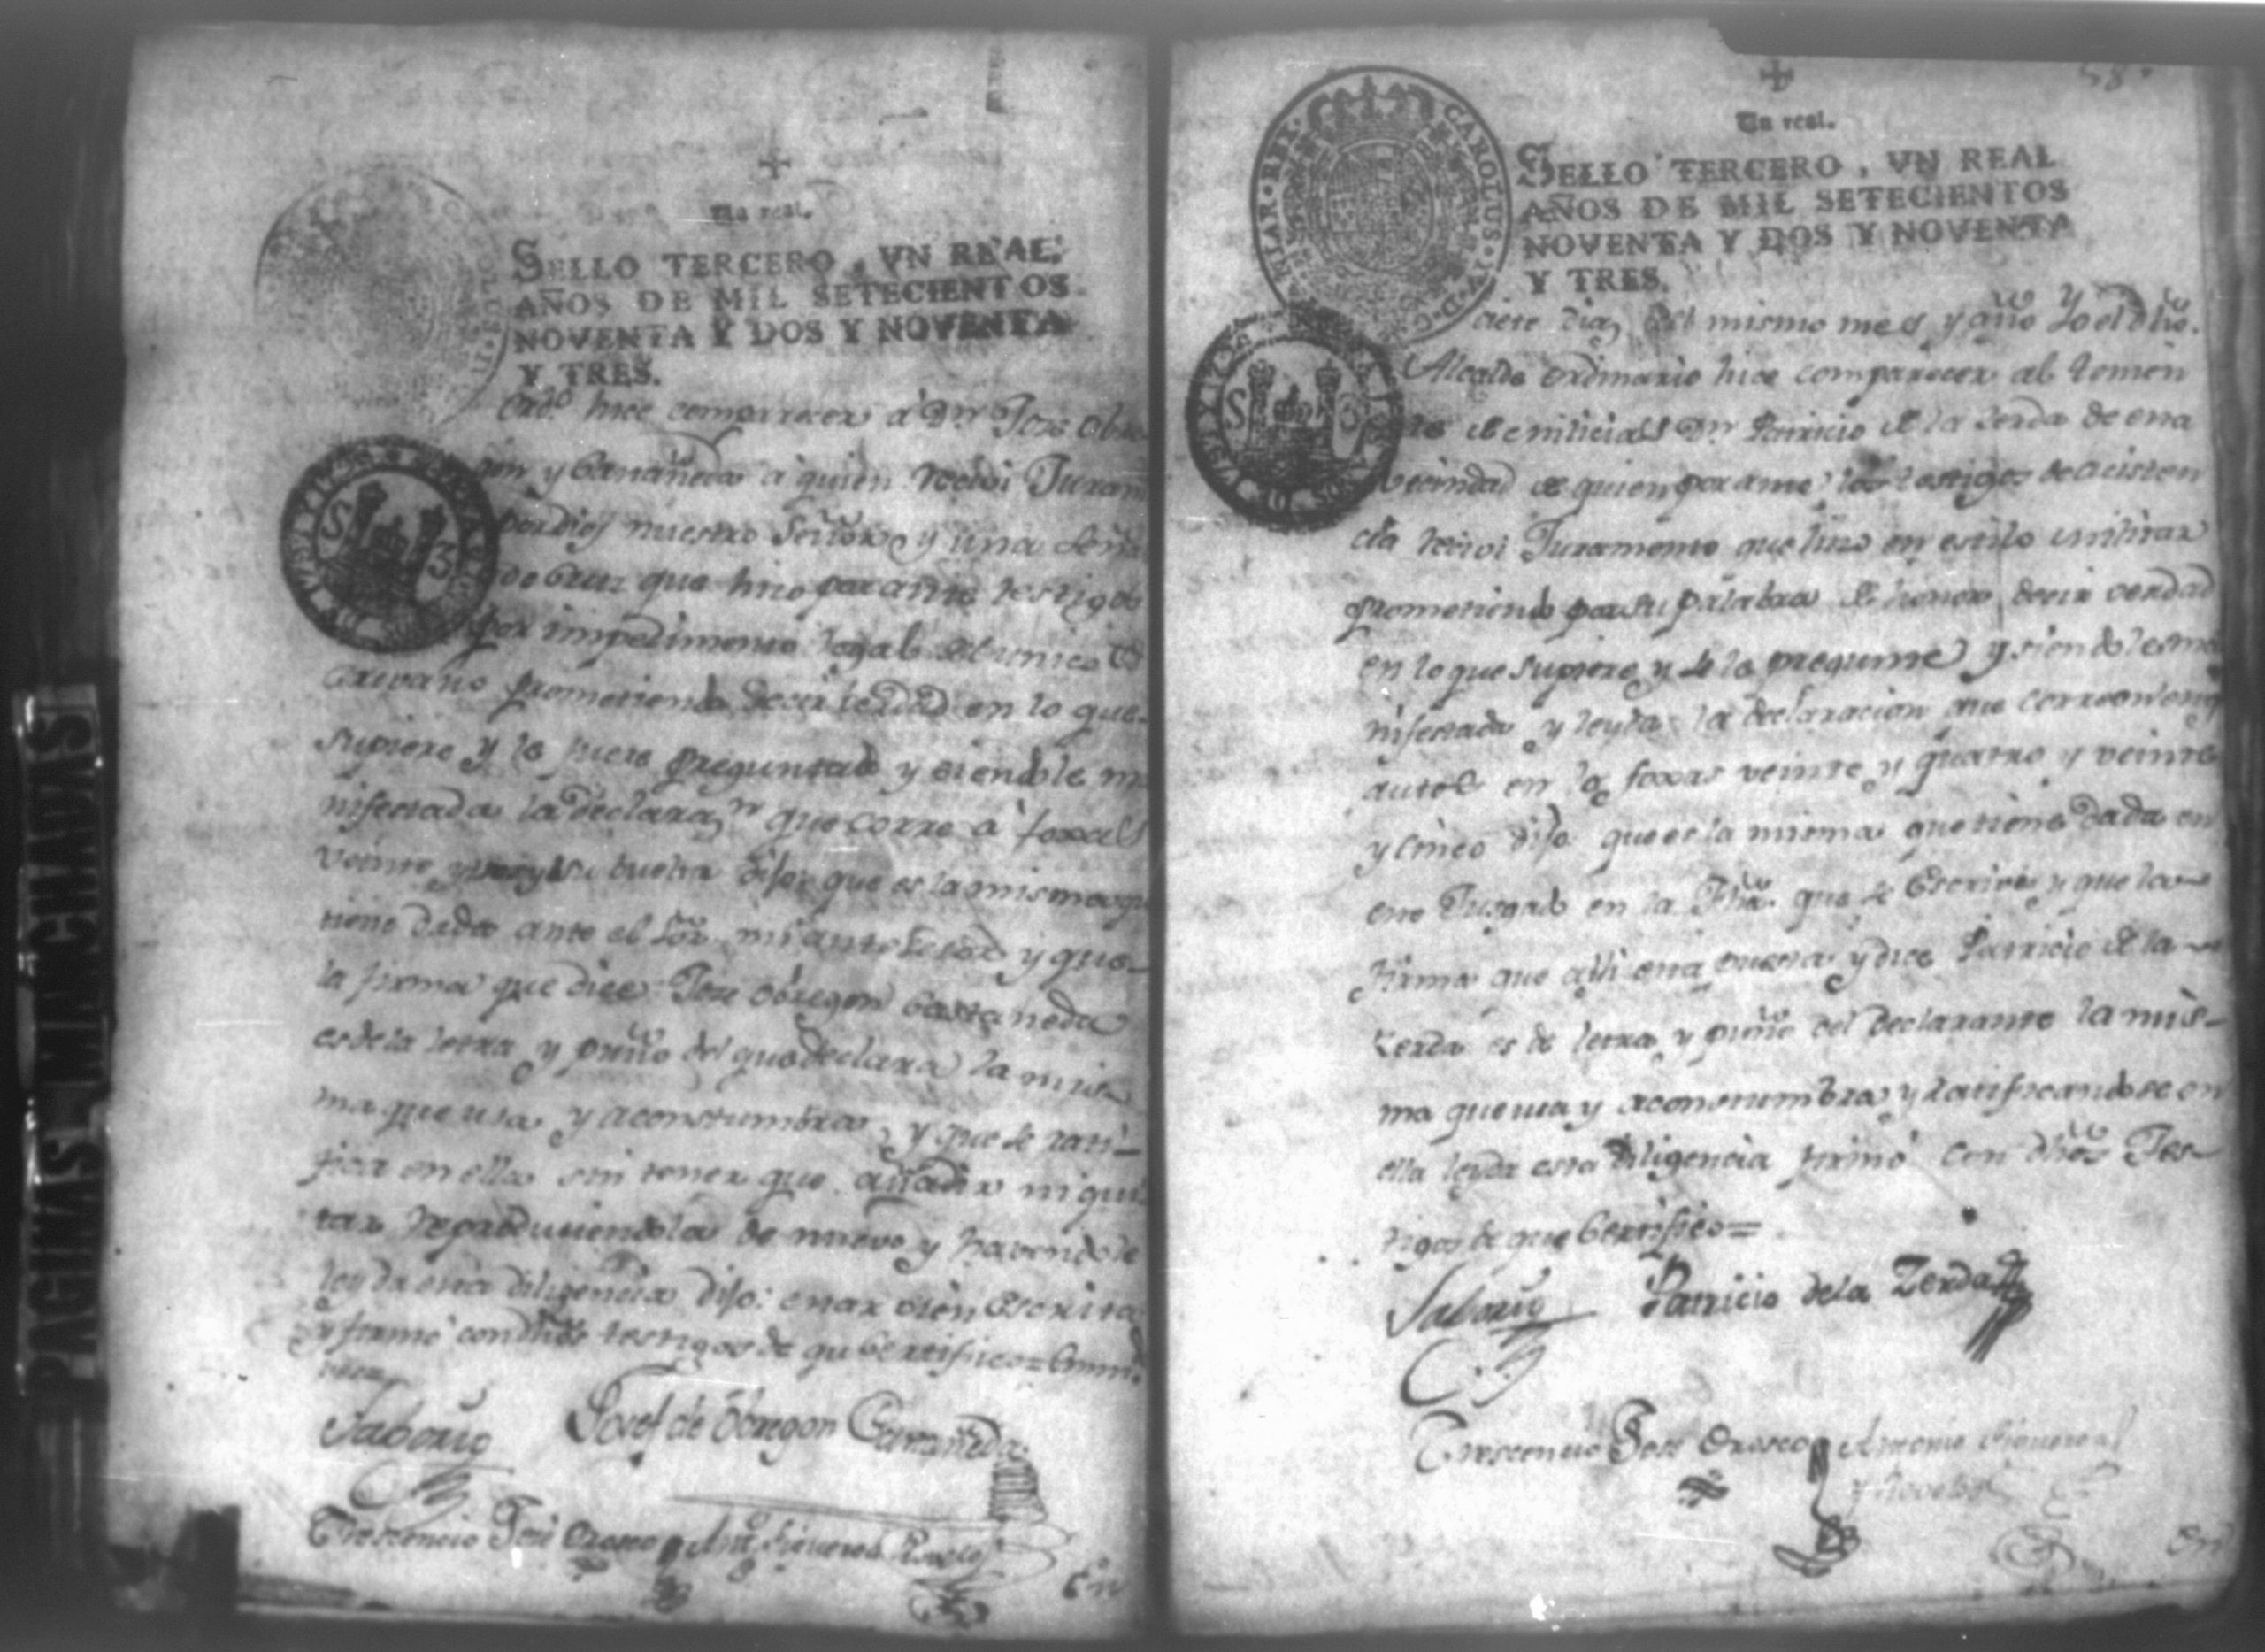 PAGINAS MANCHADAS
Un real.
SELLO TERCERO, VN REAL
AÑOS DE MIL SETECIENTOS
NOVENTA Y DOS Y NOVENTA
Y TRES.
Ordº hice comparecer á Dn Jose Obre
gon y Castañeda a quien recivi Juram
por Dios nuestro Señor, y una señal
de Cruz que hizo par ante testigos
por impedimento legal del unico Es
crivano prometiendo decir verdad en lo que
supiere y le fuere preguntado y siendole ma
nifestada la declaraon que corre a foxas
veinte y buelta dijo que es la misma qe
tiene dada ante el Sor mi antecesor y que
la firma que dice Jose Obregon Castañeda
es de la letra, y puño del que declara la mis
ma que usa y acostumbra, y que se rati-
fica en ella sin tener que añadir ni qui
tar reproduciendola de nuevo, y haviendole
leyda esta diligencia dijo: estar vien escrita
y firmó con dhos testigos de que certifico
Saborio Josef de Obregon Castañeda
Crescencio José Orosco Anto Figueroa
En
58.
Un real.
SELLO TERCERO, VN REAL
AÑOS DE MIL SETECIENTOS
NOVENTA Y DOS Y NOVENTA
Y TRES.
CAROLUS IV D G HISPANIAR REX
S 3
siete dias del mismo mes y año Yo el dho.
Alcalde ordinario hice comparecer al Tenien
te de milicias Dn Patricio de la Serda de esta
vecindad de quien par ante los testigos de asisten
cia recivi Juramento que hizo en estilo militar
prometiendo por su palabra de honor decir verdad
en lo que supiere, y se le pregunte y siendole ma
nifestada, y leyda la declaracion que corre en estos
autos en las foxas veinte, y quatro y veinte
y cinco dijo que es la misma que tiene dada en
este Juzgado en la fha. que se escrive, y que la
firma que alli esta puesta y dice Patricio de la
Zerda es de letra, y puño del declarante la mis-
ma que usa y acostumbra, y ratificandose en
ella leyda esta diligencia firmó con dhos Tes-
tigos de que Certifico=
Saborio Patricio de la Zerda
Crescencio José Orosco Antonio Figueroa
En